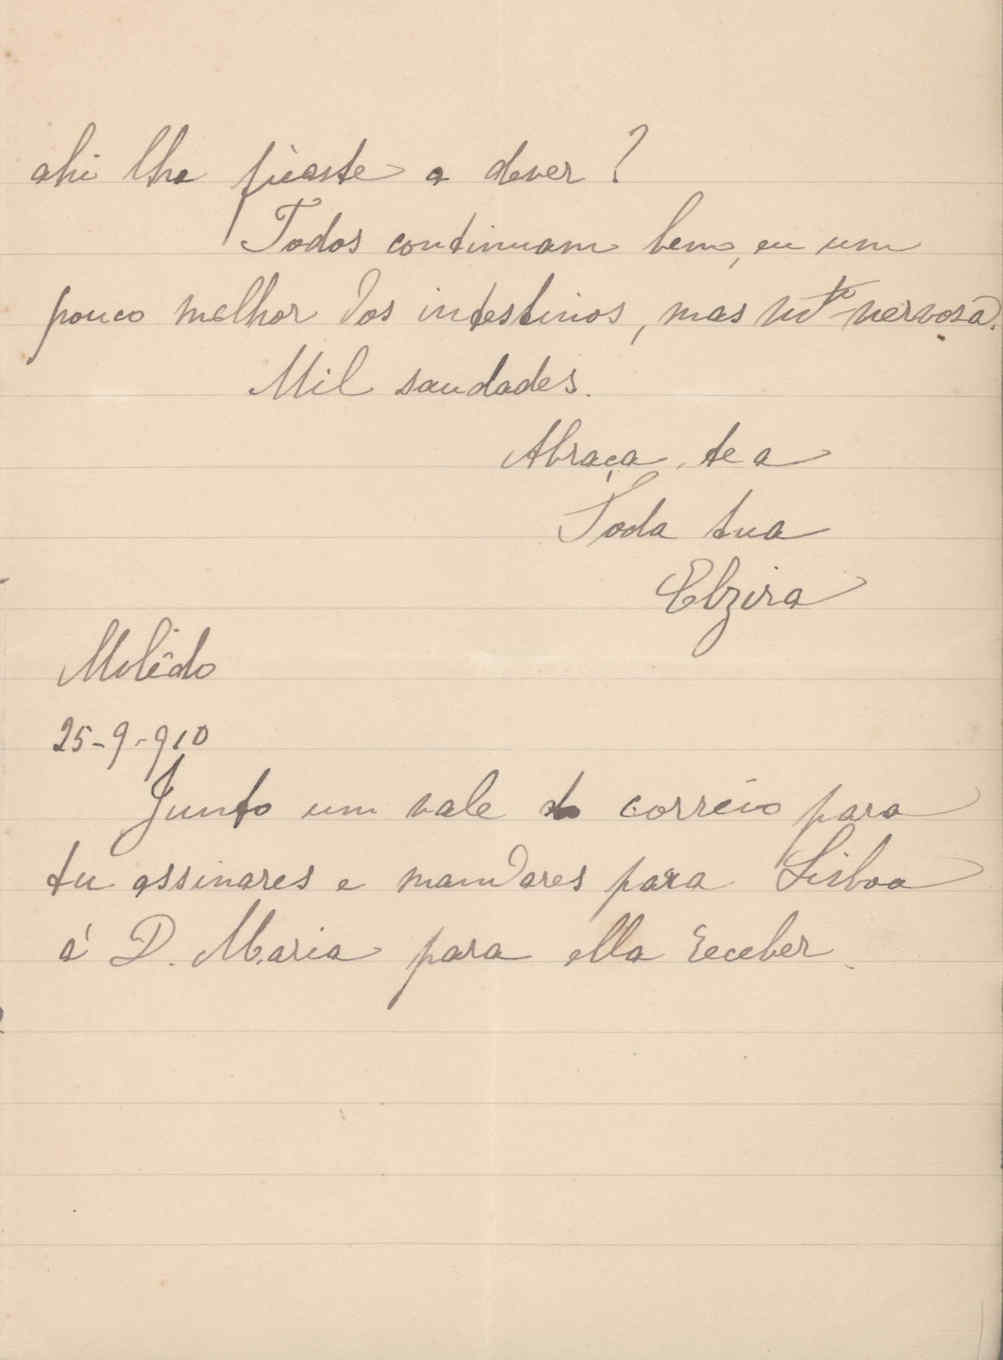 ahi lhe ficaste a dever?
Todos continuam bem, eu um
pouco melhor dos intestinos, mas mto nervosa.
Mil saudades.
Abraça-te a
Toda tua
Elzira
Molêdo
25-9-910
Junto um vale do correio para
tu assinares e mandares para Lisboa
á D. Maria para ella receber.